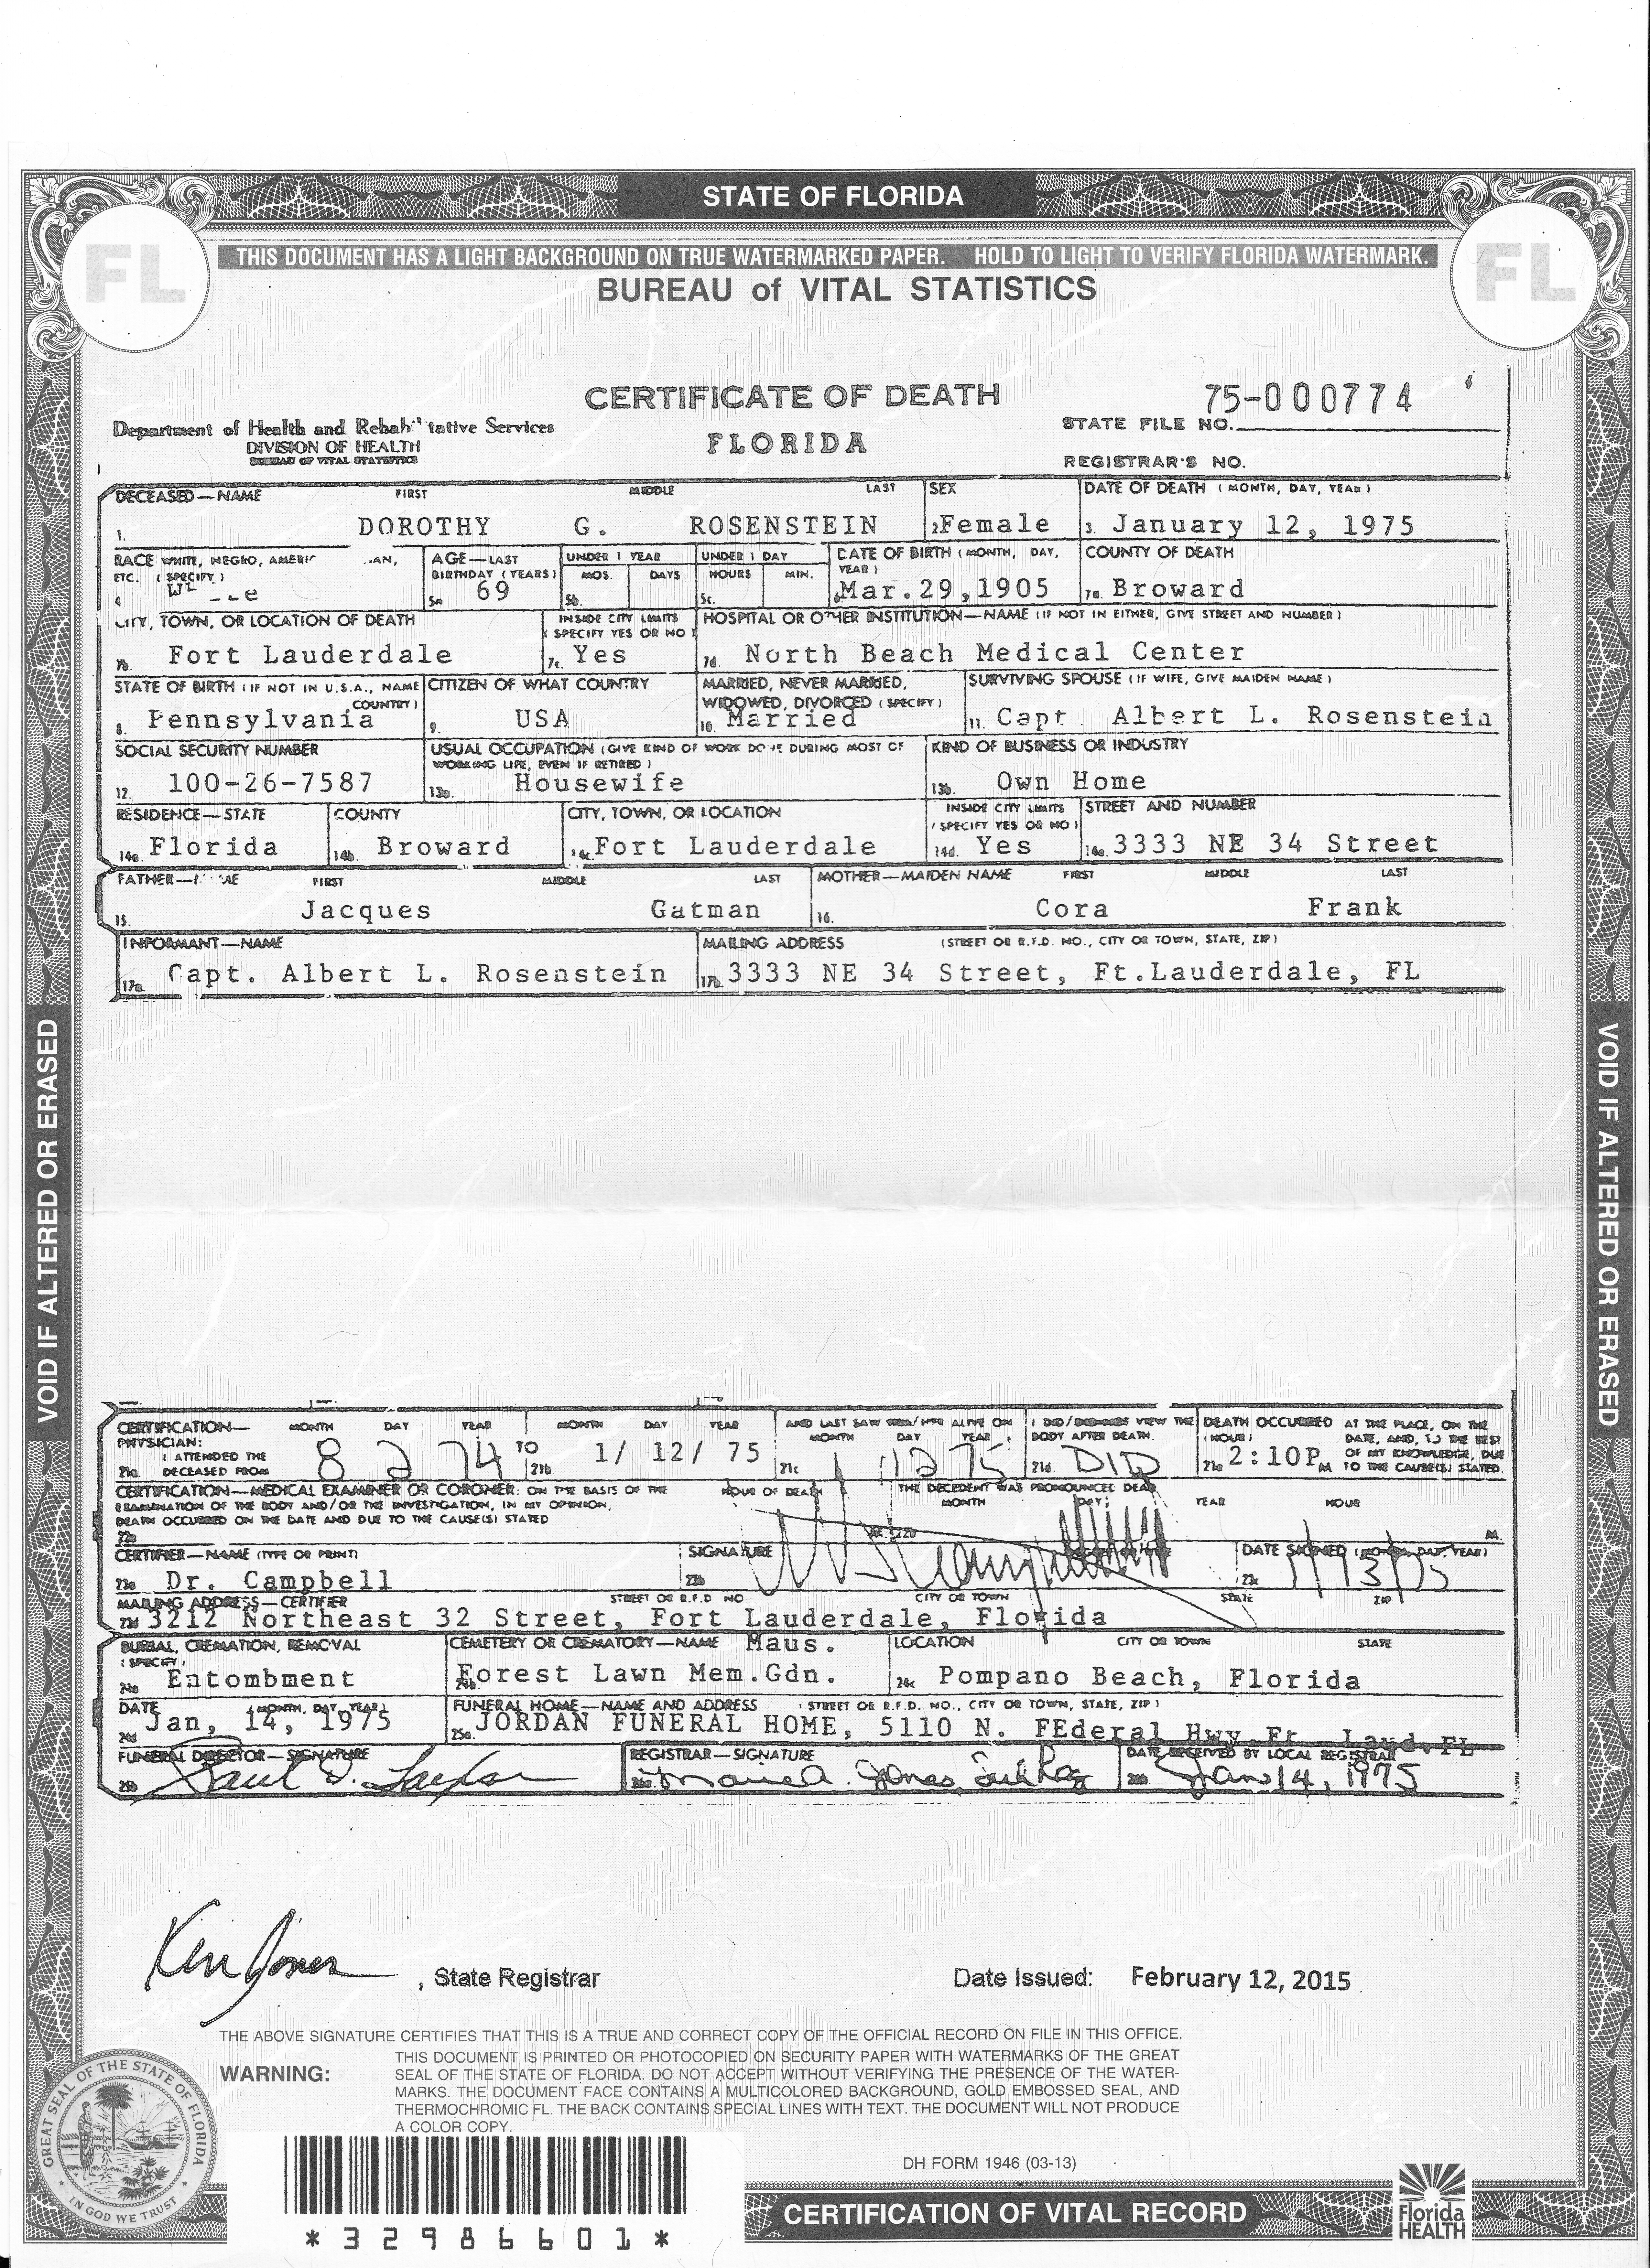 STATE OF FLORIDA
THIS DOCUMENT HAS A LIGHT BACKGROUND ON TRUE WATERMARKED PAPER. HOLD TO LIGHT TO VERIFY FLORIDA WATERMARK.
FL FL
BUREAU of VITAL STATISTICS
CERTIFICATE OF DEATH
FLORIDA
75-000774
STATE FILE NO.
REGISTRAR'S NO.
Department of Health and Rehab tative Services
DIVISION OF HEALTH
BUREAU OF VITAL STATISTICS
DECEASED—NAME FIRST MIDDLE LAST SEX DATE OF DEATH (MONTH, DAY, YEAR)
1. DOROTHY G. ROSENSTEIN 2. Female 3. January 12, 1975
RACE WHITE, NEGRO, AMERI AN, AGE—LAST UNDER 1 YEAR UNDER 1 DAY DATE OF BIRTH (MONTH, DAY, COUNTY OF DEATH
ETC. (SPECIFY) BIRTHDAY (YEARS) MOS. DAYS HOURS MIN. YEAR)
4 5a. 69 5b. 5c. 6. Mar.29,1905 7a. Broward
CITY, TOWN, OR LOCATION OF DEATH INSIDE CITY LIMITS HOSPITAL OR OTHER INSTITUTION—NAME (IF NOT IN EITHER, GIVE STREET AND NUMBER)
(SPECIFY YES OR NO)
7b. Fort Lauderdale 7c. Yes 7d. North Beach Medical Center
STATE OF BIRTH (IF NOT IN U.S.A., NAME CITIZEN OF WHAT COUNTRY MARRIED, NEVER MARRIED, SURVIVING SPOUSE (IF WIFE, GIVE MAIDEN NAME)
COUNTRY) WIDOWED, DIVORCED (SPECIFY)
8. Pennsylvania 9. USA 10. Married 11. Capt. Albert L. Rosenstein
SOCIAL SECURITY NUMBER USUAL OCCUPATION (GIVE KIND OF WORK DONE DURING MOST OF KIND OF BUSINESS OR INDUSTRY
WORKING LIFE, EVEN IF RETIRED)
12. 100-26-7587 13a. Housewife 13b. Own Home
RESIDENCE—STATE COUNTY CITY, TOWN, OR LOCATION INSIDE CITY LIMITS STREET AND NUMBER
(SPECIFY YES OR NO)
14a. Florida 14b. Broward 14c. Fort Lauderdale 14d. Yes 14e. 3333 NE 34 Street
FATHER— FIRST MIDDLE LAST MOTHER—MAIDEN NAME FIRST MIDDLE LAST
15. Jacques Gatman 16. Cora Frank
INFORMANT—NAME MAILING ADDRESS (STREET OR R.F.D. NO., CITY OR TOWN, STATE, ZIP)
17a. Capt. Albert L. Rosenstein 17b. 3333 NE 34 Street, Ft.Lauderdale, FL
CERTIFICATION— MONTH DAY YEAR MONTH DAY YEAR AND LAST SAW HIM/HER ALIVE ON I DID/DID NOT VIEW THE DEATH OCCURRED AT THE PLACE, ON THE
PHYSICIAN: MONTH DAY YEAR BODY AFTER DEATH. (HOUR) DATE, AND, TO THE BEST
I ATTENDED THE OF MY KNOWLEDGE, DUE
21a. DECEASED FROM 8 2 74 TO 21b. 1/ 12/ 75 21c. 1 12 75 21d. DID 21e. 2:10P M TO THE CAUSE(S) STATED.
CERTIFICATION—MEDICAL EXAMINER OR CORONER: ON THE BASIS OF THE HOUR OF DEATH THE DECEDENT WAS PRONOUNCED DEAD
EXAMINATION OF THE BODY AND/OR THE INVESTIGATION, IN MY OPINION, MONTH DAY YEAR HOUR
DEATH OCCURRED ON THE DATE AND DUE TO THE CAUSE(S) STATED
22a. M.
CERTIFIER—NAME (TYPE OR PRINT) SIGNATURE DATE SIGNED (MONTH, DAY, YEAR)
23a Dr. Campbell 23b 23c 1/13/75
MAILING ADDRESS—CERTIFIER STREET OR R.F.D NO CITY OR TOWN STATE ZIP
23d 3212 Northeast 32 Street, Fort Lauderdale, Florida
BURIAL, CREMATION, REMOVAL CEMETERY OR CREMATORY—NAME Maus. LOCATION CITY OR TOWN STATE
(SPECIFY)
24a Entombment 24b. Forest Lawn Mem.Gdn. 24c Pompano Beach, Florida
DATE (MONTH, DAY, YEAR) FUNERAL HOME—NAME AND ADDRESS (STREET OR R.F.D. NO., CITY OR TOWN, STATE, ZIP)
24d Jan, 14, 1975 25a. JORDAN FUNERAL HOME, 5110 N. FEderal Hwy Ft. Laud.FL
FUNERAL DIRECTOR—SIGNATURE REGISTRAR—SIGNATURE DATE RECEIVED BY LOCAL REGISTRAR
25b Jan 14, 1975
Ken Jones , State Registrar Date Issued: February 12, 2015
THE ABOVE SIGNATURE CERTIFIES THAT THIS IS A TRUE AND CORRECT COPY OF THE OFFICIAL RECORD ON FILE IN THIS OFFICE.
WARNING: THIS DOCUMENT IS PRINTED OR PHOTOCOPIED ON SECURITY PAPER WITH WATERMARKS OF THE GREAT
SEAL OF THE STATE OF FLORIDA. DO NOT ACCEPT WITHOUT VERIFYING THE PRESENCE OF THE WATER-
MARKS. THE DOCUMENT FACE CONTAINS A MULTICOLORED BACKGROUND, GOLD EMBOSSED SEAL, AND
THERMOCHROMIC FL. THE BACK CONTAINS SPECIAL LINES WITH TEXT. THE DOCUMENT WILL NOT PRODUCE
A COLOR COPY.
GREAT SEAL OF THE STATE OF FLORIDA
IN GOD WE TRUST
DH FORM 1946 (03-13)
CERTIFICATION OF VITAL RECORD
Florida
HEALTH
*32986601*
VOID IF ALTERED OR ERASED
VOID IF ALTERED OR ERASED